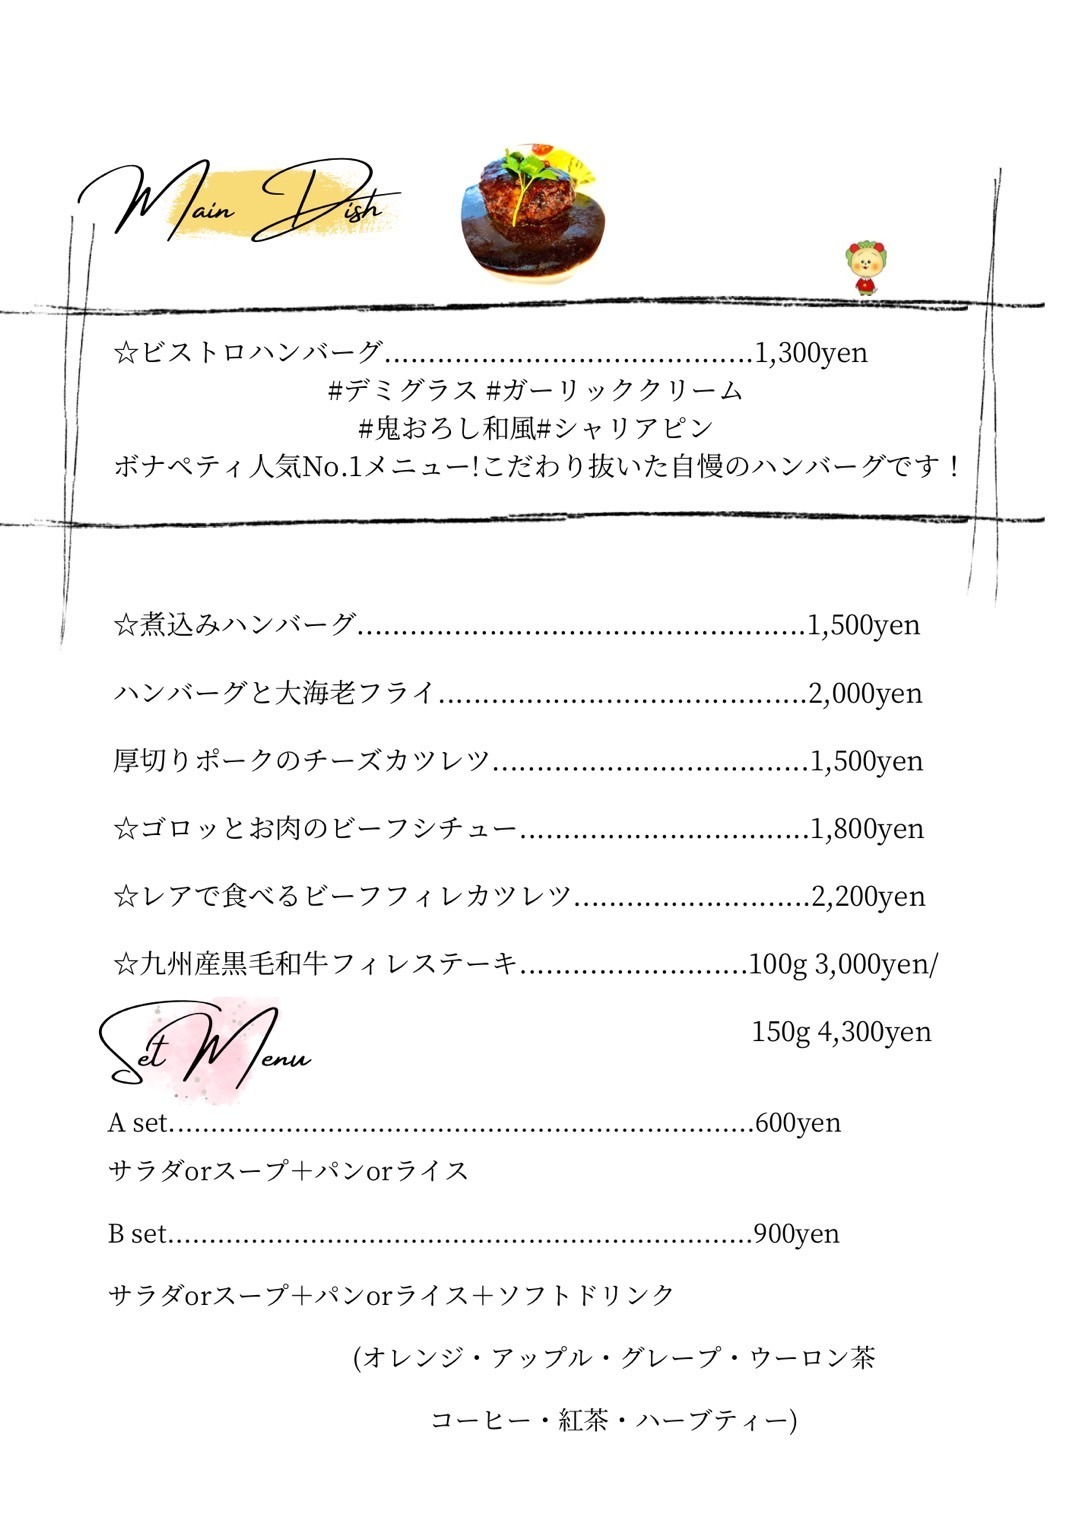 Main Dish
☆ビストロハンバーグ.........................................1,300yen
#デミグラス #ガーリッククリーム
#鬼おろし和風#シャリアピン
ボナペティ人気No.1メニュー!こだわり抜いた自慢のハンバーグです！
☆煮込みハンバーグ..................................................1,500yen
ハンバーグと大海老フライ.........................................2,000yen
厚切りポークのチーズカツレツ...................................1,500yen
☆ゴロッとお肉のビーフシチュー................................1,800yen
☆レアで食べるビーフフィレカツレツ..........................2,200yen
☆九州産黒毛和牛フィレステーキ.........................100g 3,000yen/
150g 4,300yen
Set Menu
A set.................................................................600yen
サラダorスープ＋パンorライス
B set.................................................................900yen
サラダorスープ＋パンorライス＋ソフトドリンク
(オレンジ・アップル・グレープ・ウーロン茶
コーヒー・紅茶・ハーブティー)